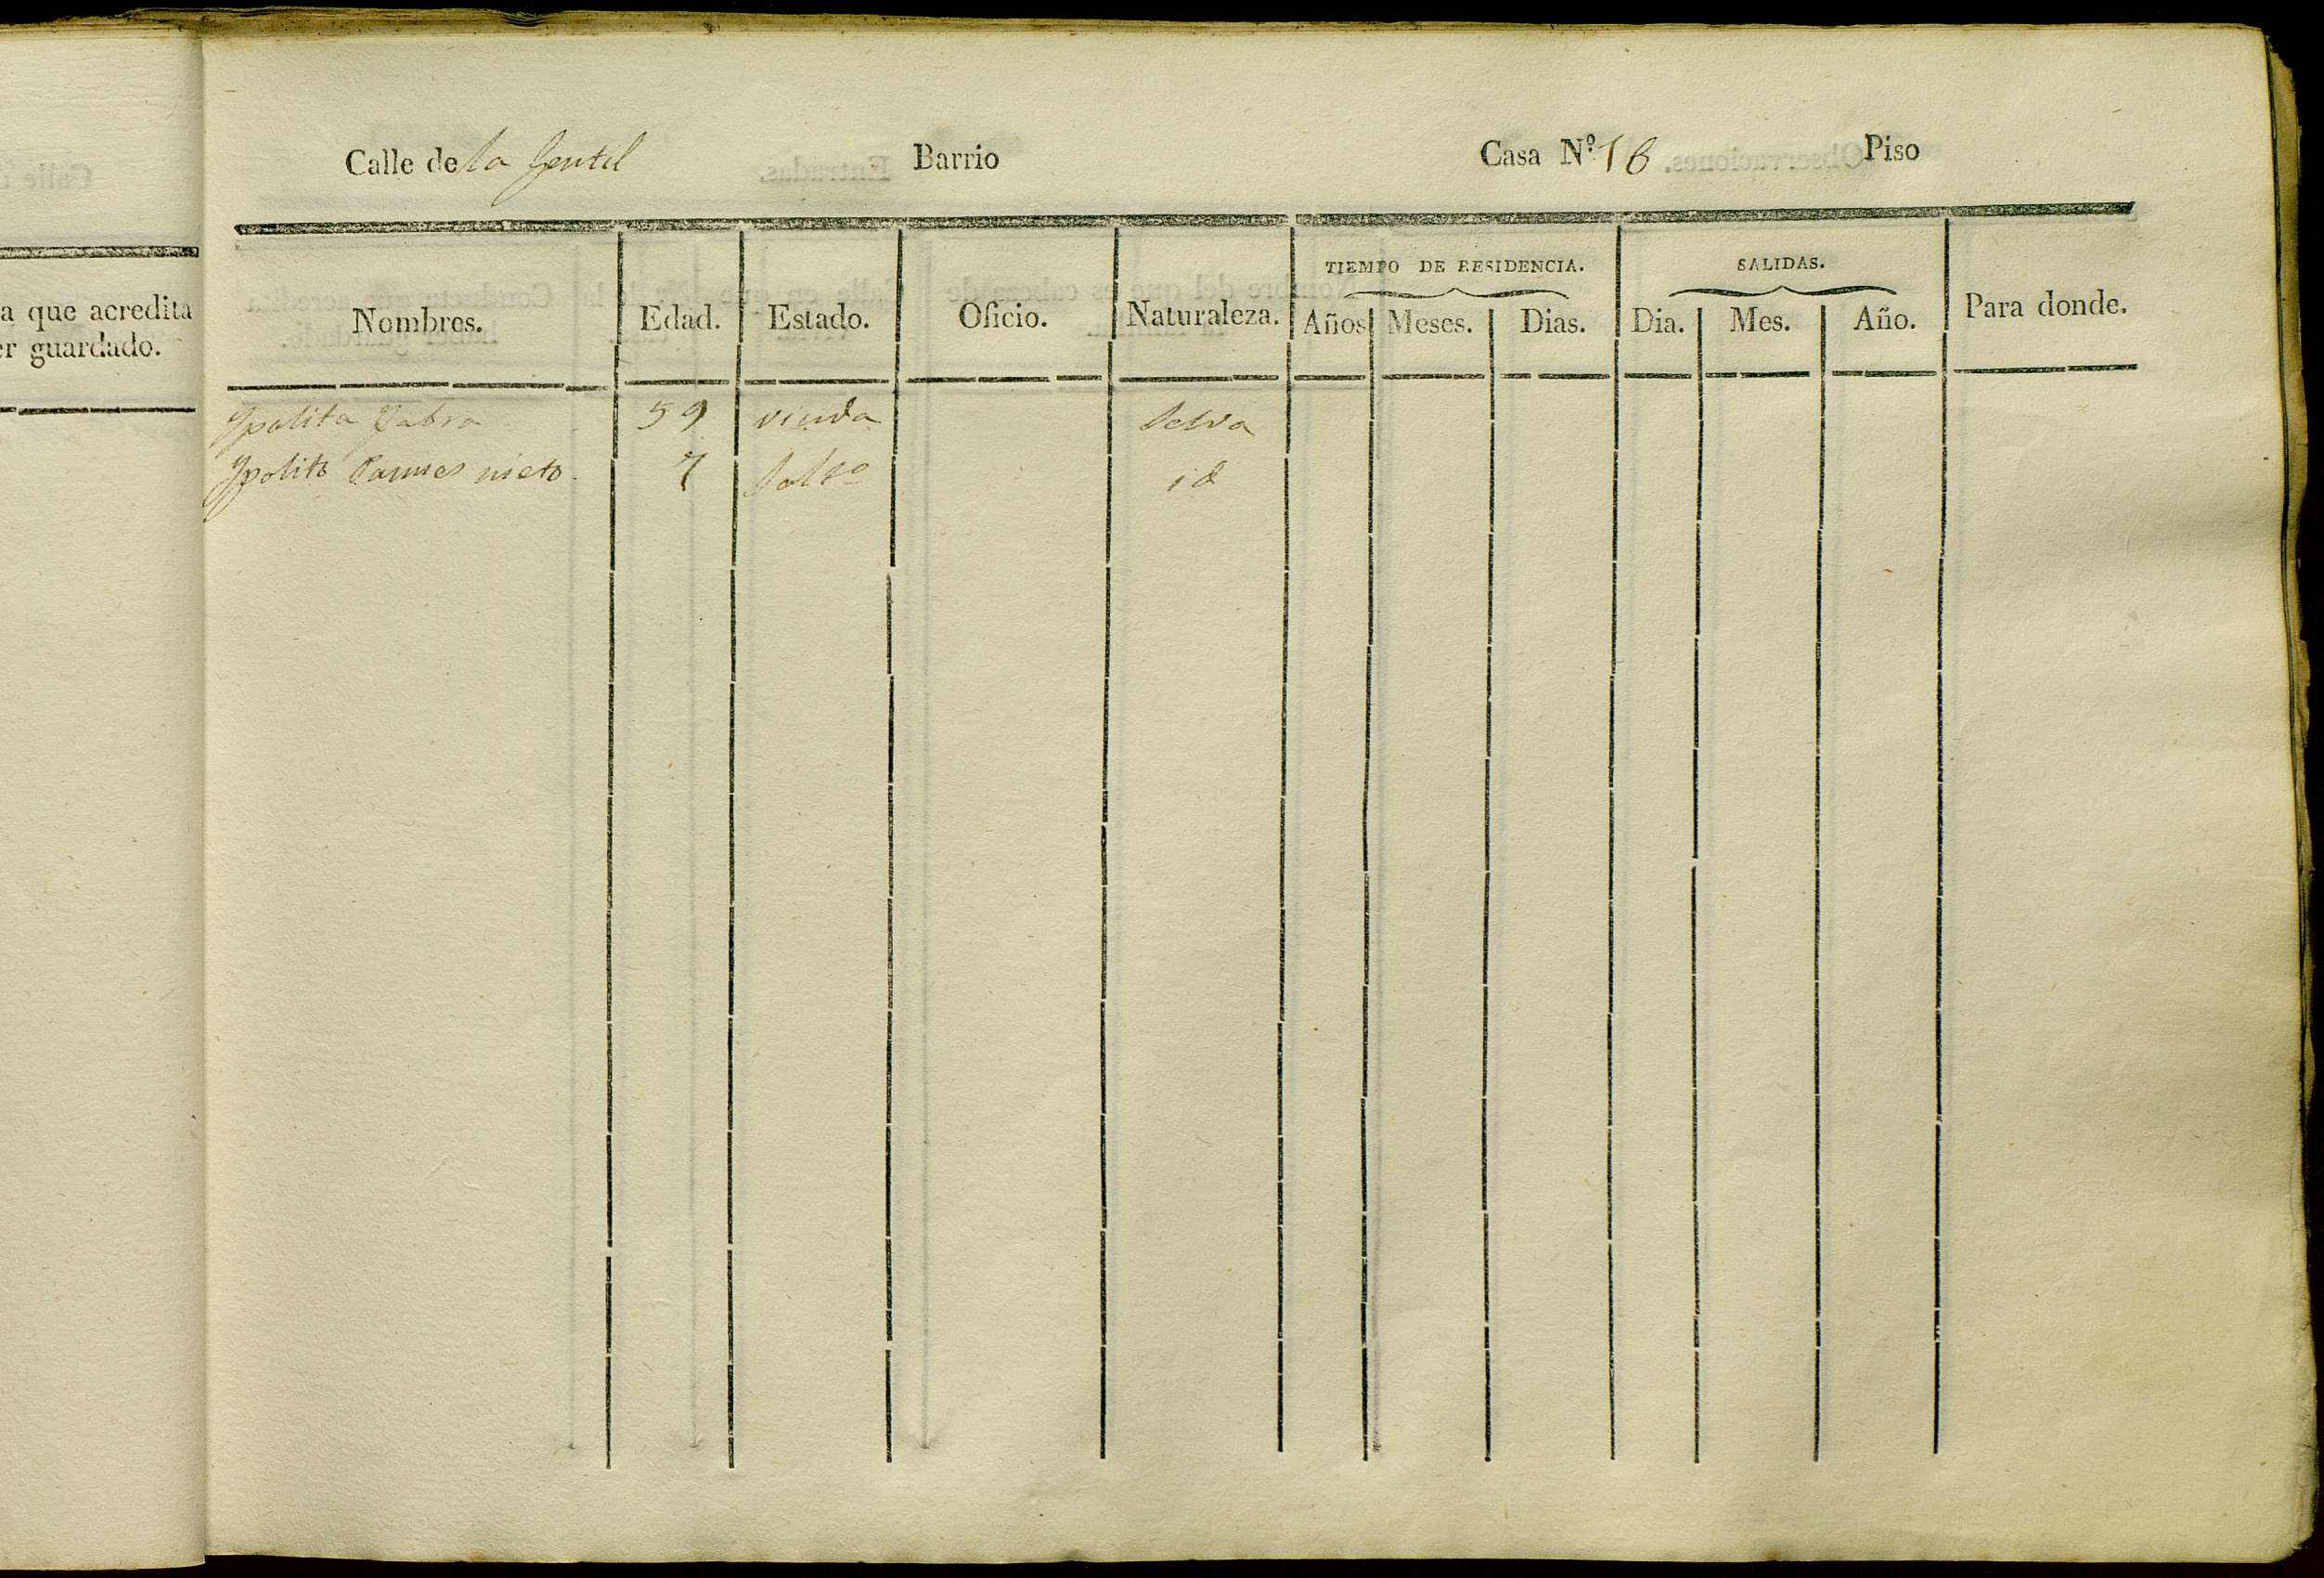 a que acredita
er guardado.
Calle de la Gentil Barrio Casa N.º 18 Piso
TIEMPO DE RESIDENCIA. SALIDAS.
Nombres. Edad. Estado. Oficio. Naturaleza. Años Meses. Dias. Dia. Mes. Año. Para donde.
Ypolita 59 viuda Selva
Ypolito nieto 7 Solto id